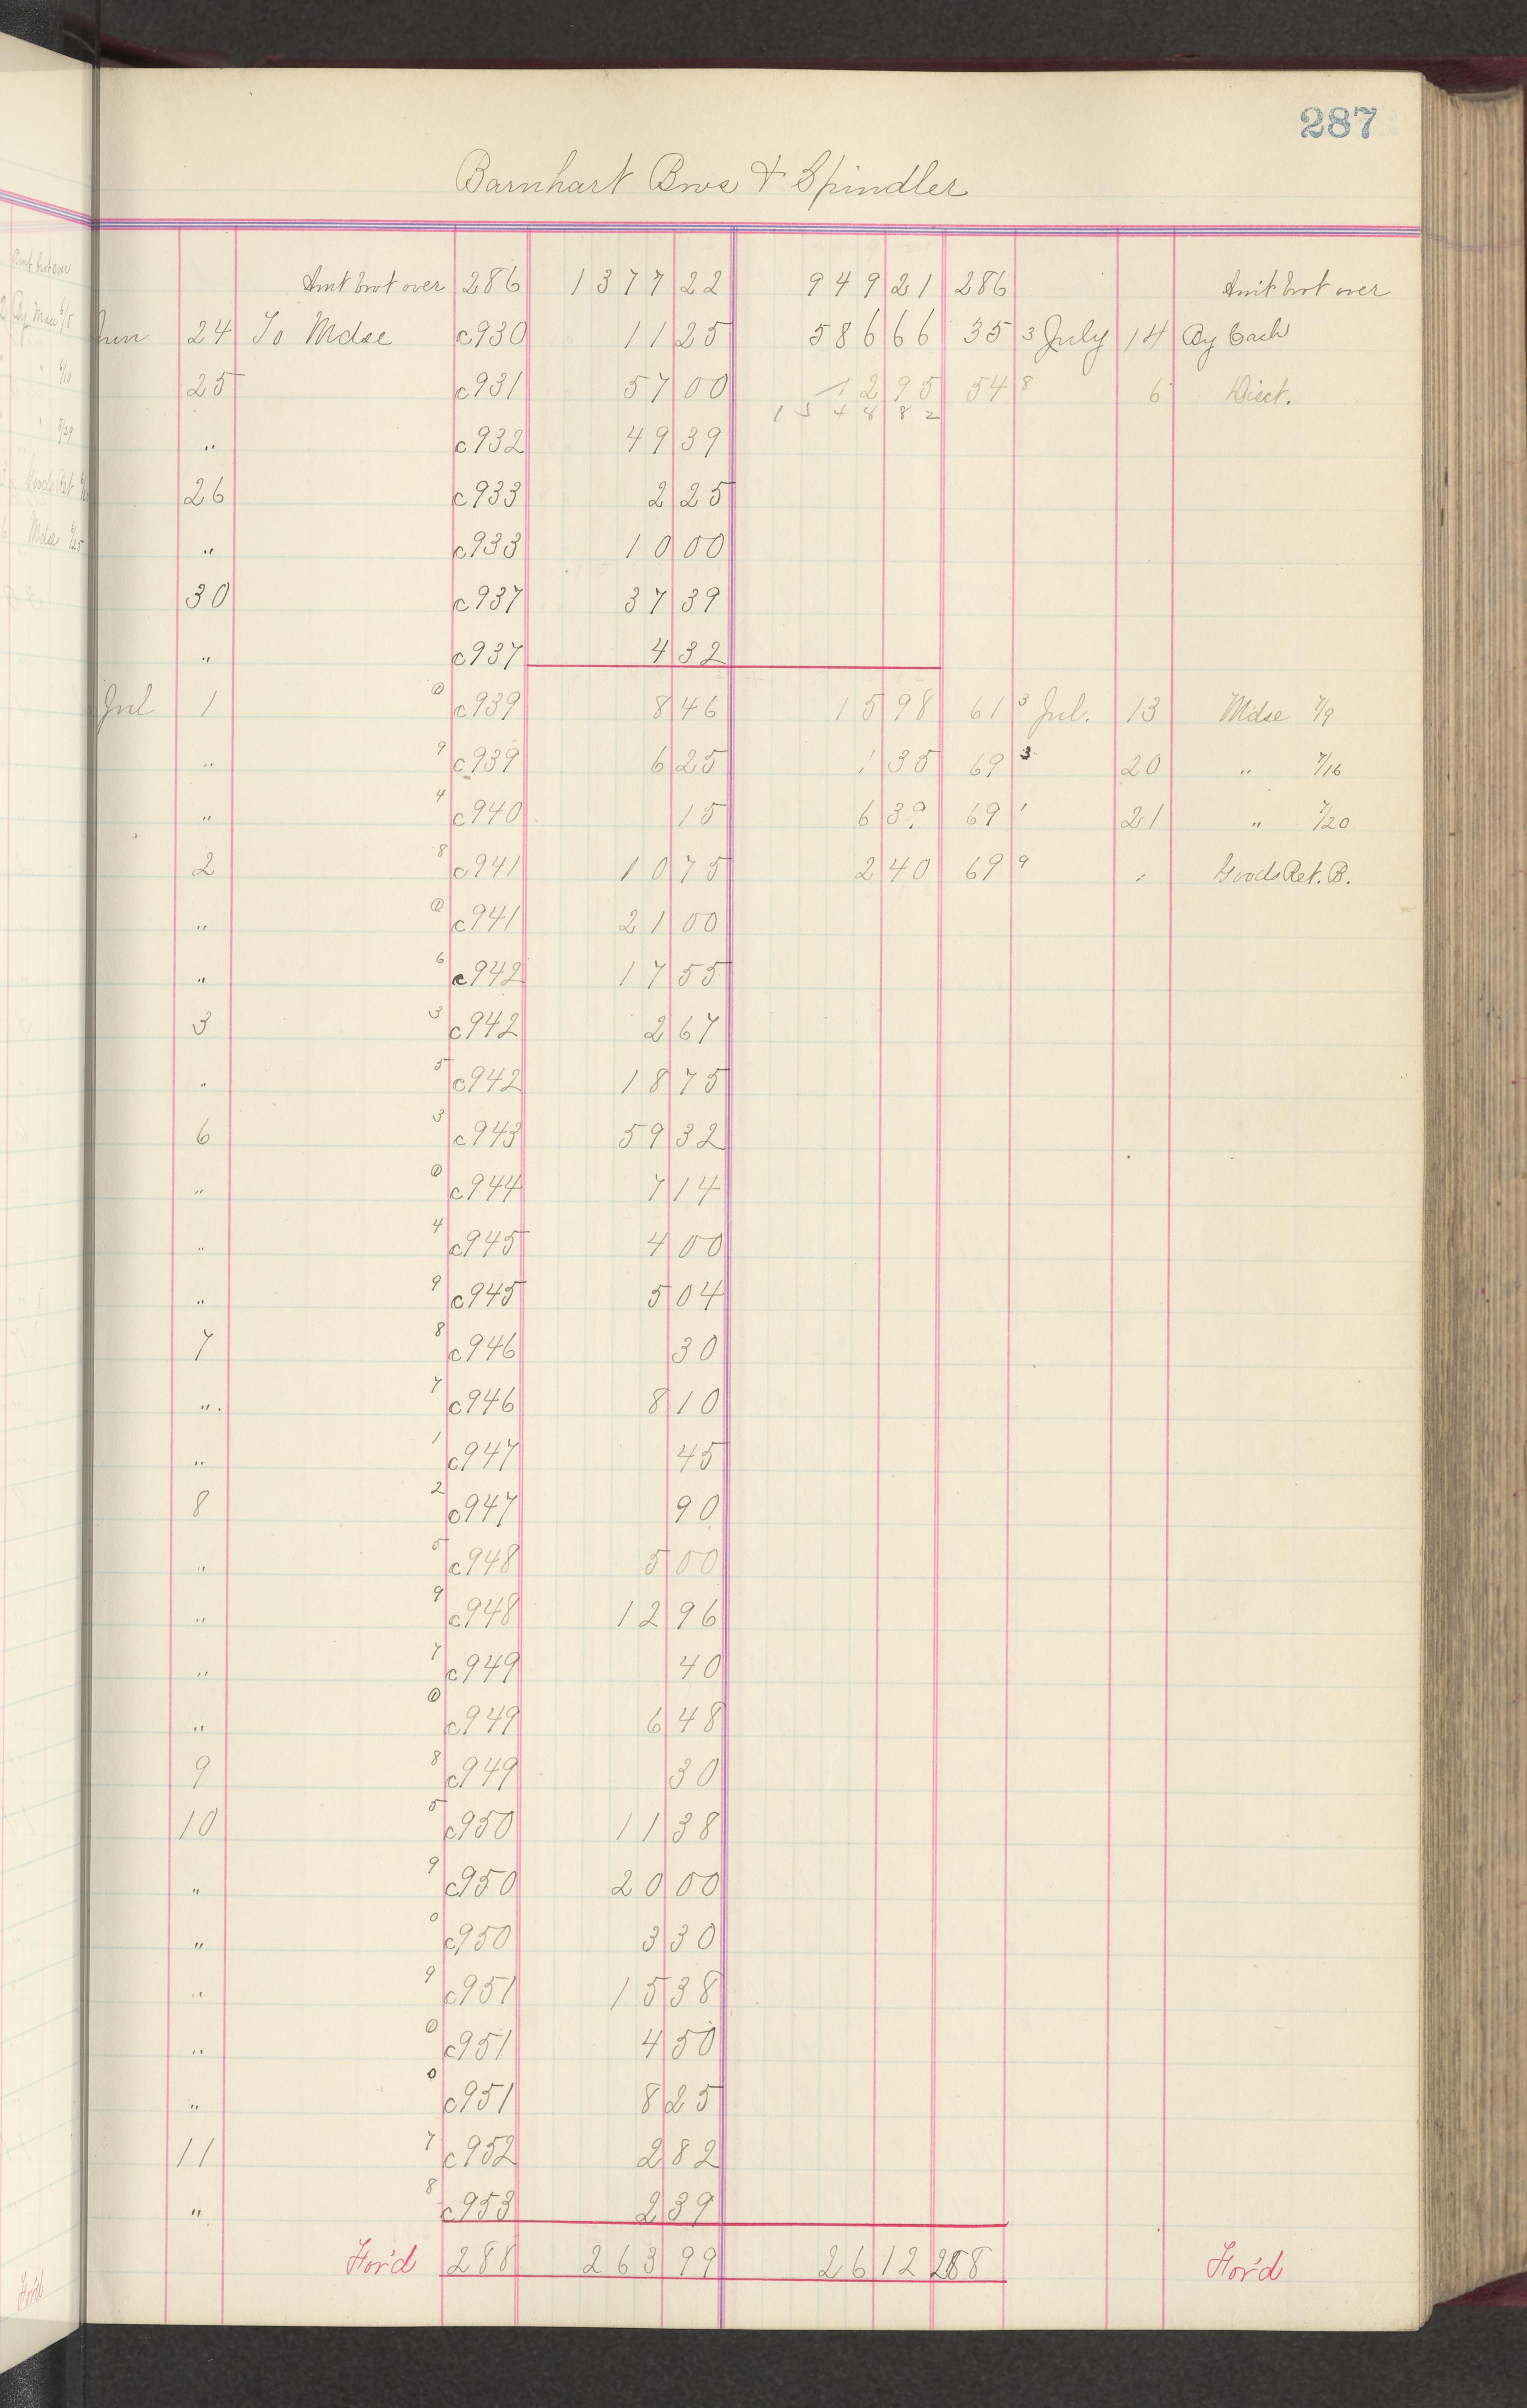 287
Barnhart Bros & Spindler
Amt brot over 286 1377 22 949 21 286 Amt brot over
Jun 24 To Mdse c930 11 25 586 66 35 3 July 14 By Cash
25 c931 57 00 12 95 54 8 6 Disct.
1548 82
" c932 49 39
26 c933 2 25
" c933 10 00
30 c937 37 39
" c937 4 32
Jul 1 0 c939 8 46 15 98 61 3 Jul. 13 Mdse 7/9
" 9 c939 6 25 1 35 69 3 20 " 7/16
" 4 c940 15 6 39 69 1 21 " 7/20
2 8 c941 10 75 2 40 69 9 " Goods Ret. B.
" 0 c941 21 00
" 6 c942 17 55
3 3 c942 2 67
" 5 c942 18 75
6 3 c943 59 32
" 0 c944 7 14
" 4 c945 4 00
" 9 c945 5 04
7 8 c946 30
" 7 c946 8 10
" 1 c947 45
8 2 c947 90
" 5 c948 5 00
" 9 c948 12 96
" 7 c949 40
" 0 c949 6 48
9 8 c949 30
10 5 c950 11 38
" 9 c950 20 00
" 0 c950 3 30
" 9 c951 15 38
" 0 c951 4 50
" 0 c951 8 25
11 7 c952 2 82
" 8 c953 2 39
For'd 288 263 99 26 12 288 For'd